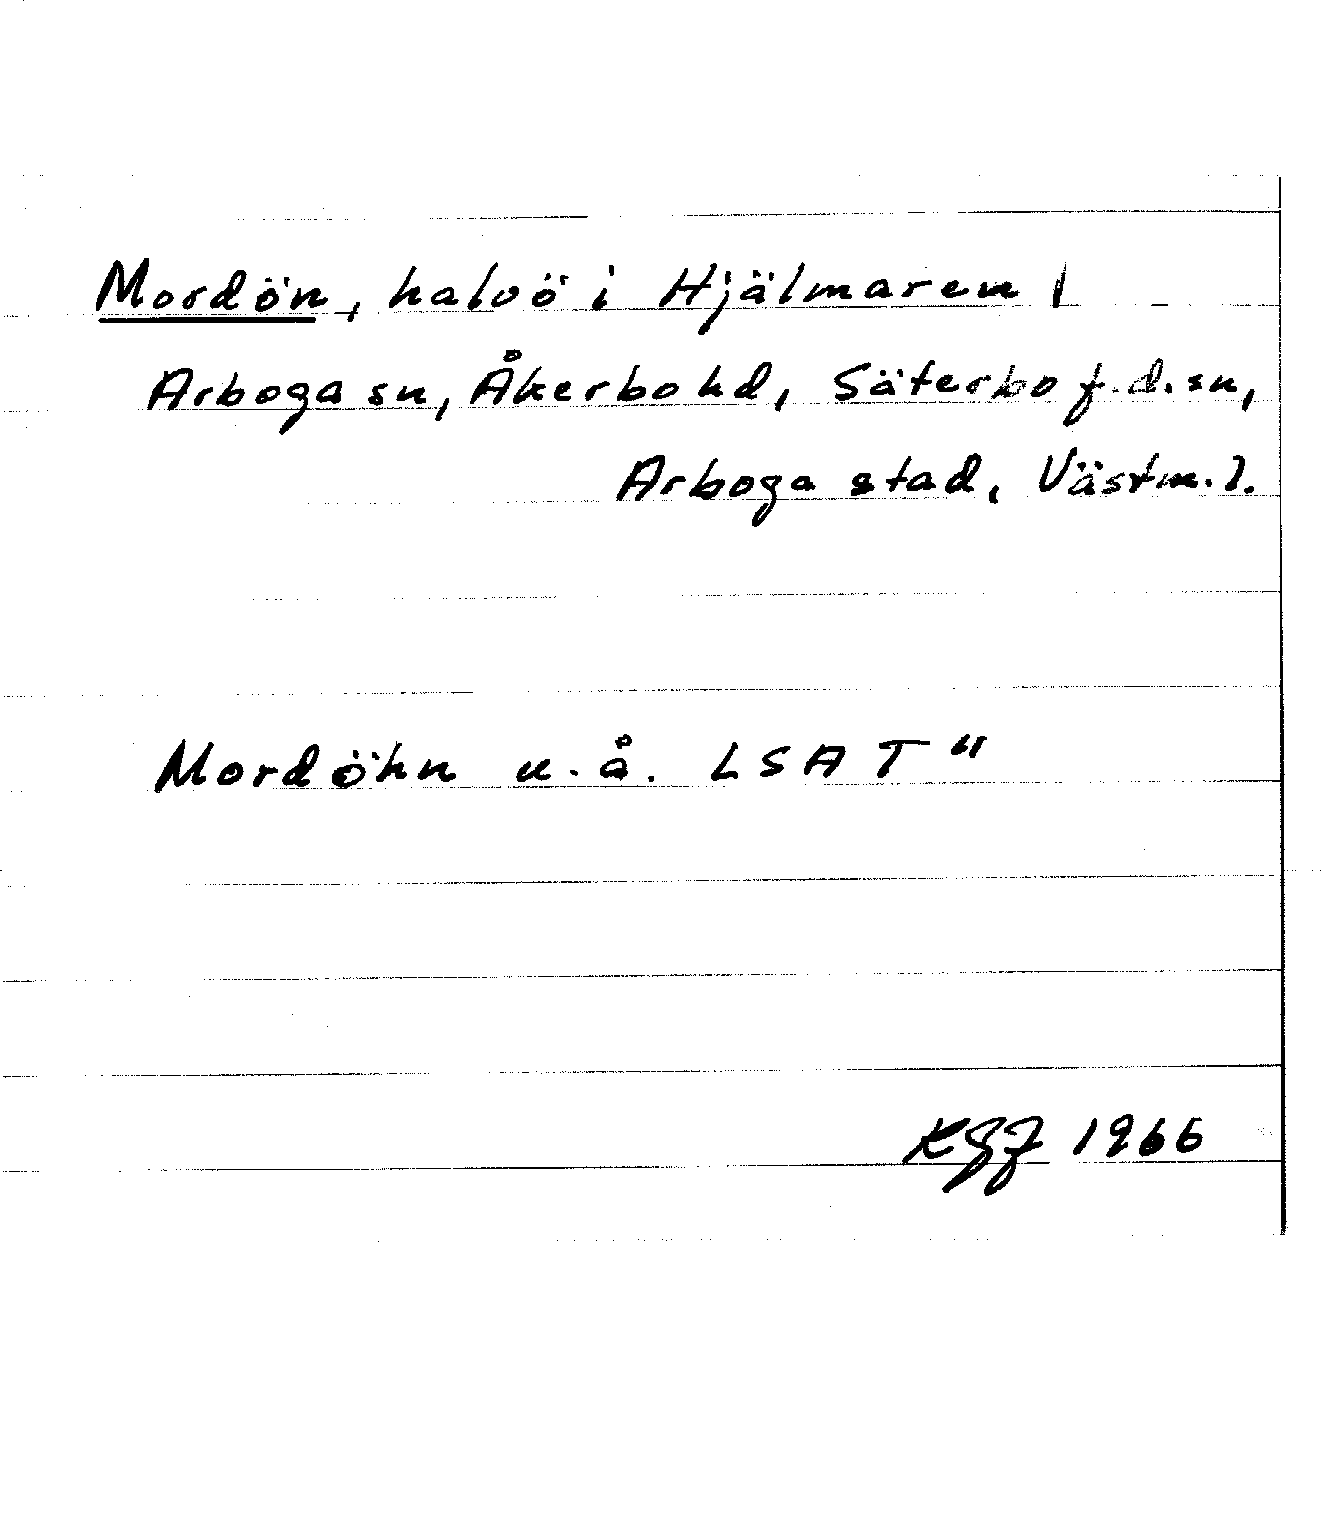 Mordön, halvö i Hjälmaren
Arboga sn, Åkerbo hd, Säterbo f.d. sn,
Arboga stad, Västm. l.
Mordöhn u.å. LSA T"
1966